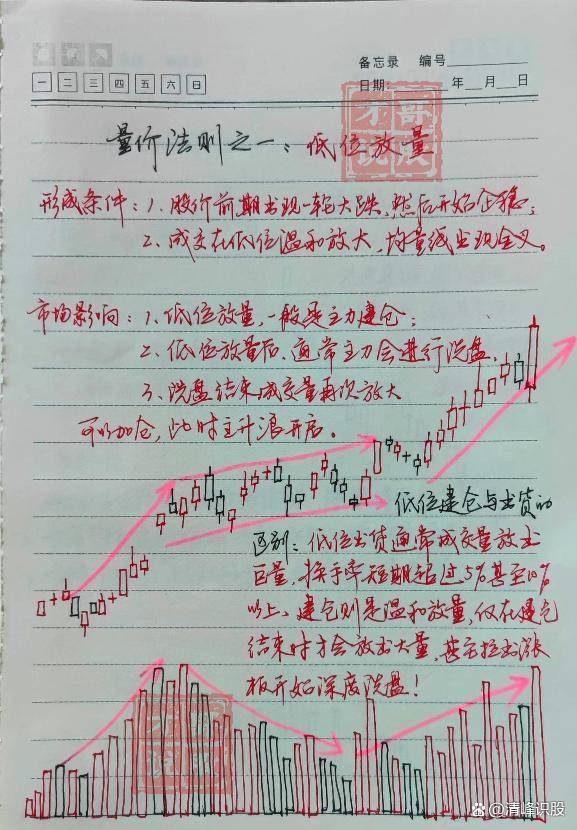 备忘录 编号
一 二 三 四 五 六 日
日期: 年 月 日
哥 才
股 说
量价法则之一：低位放量
形成条件：1、股价前期出现一轮大跌，然后开始企稳；
2、成交在低位温和放大，均量线出现金叉。
市场影响：1、低位放量，一般是主力建仓；
2、低位放量后，通常主力会进行洗盘，
3、洗盘结束成交量再次放大
可以加仓，此时主升浪开启。
低位建仓与出货的
区别：低位出货通常成交量放出
巨量，换手率短期超过5%甚至10%
以上，建仓则是温和放量，仅在建仓
结束时才会放出大量，甚至拉出涨
板开始深度洗盘！
哥 才
股 说
@清峰识股